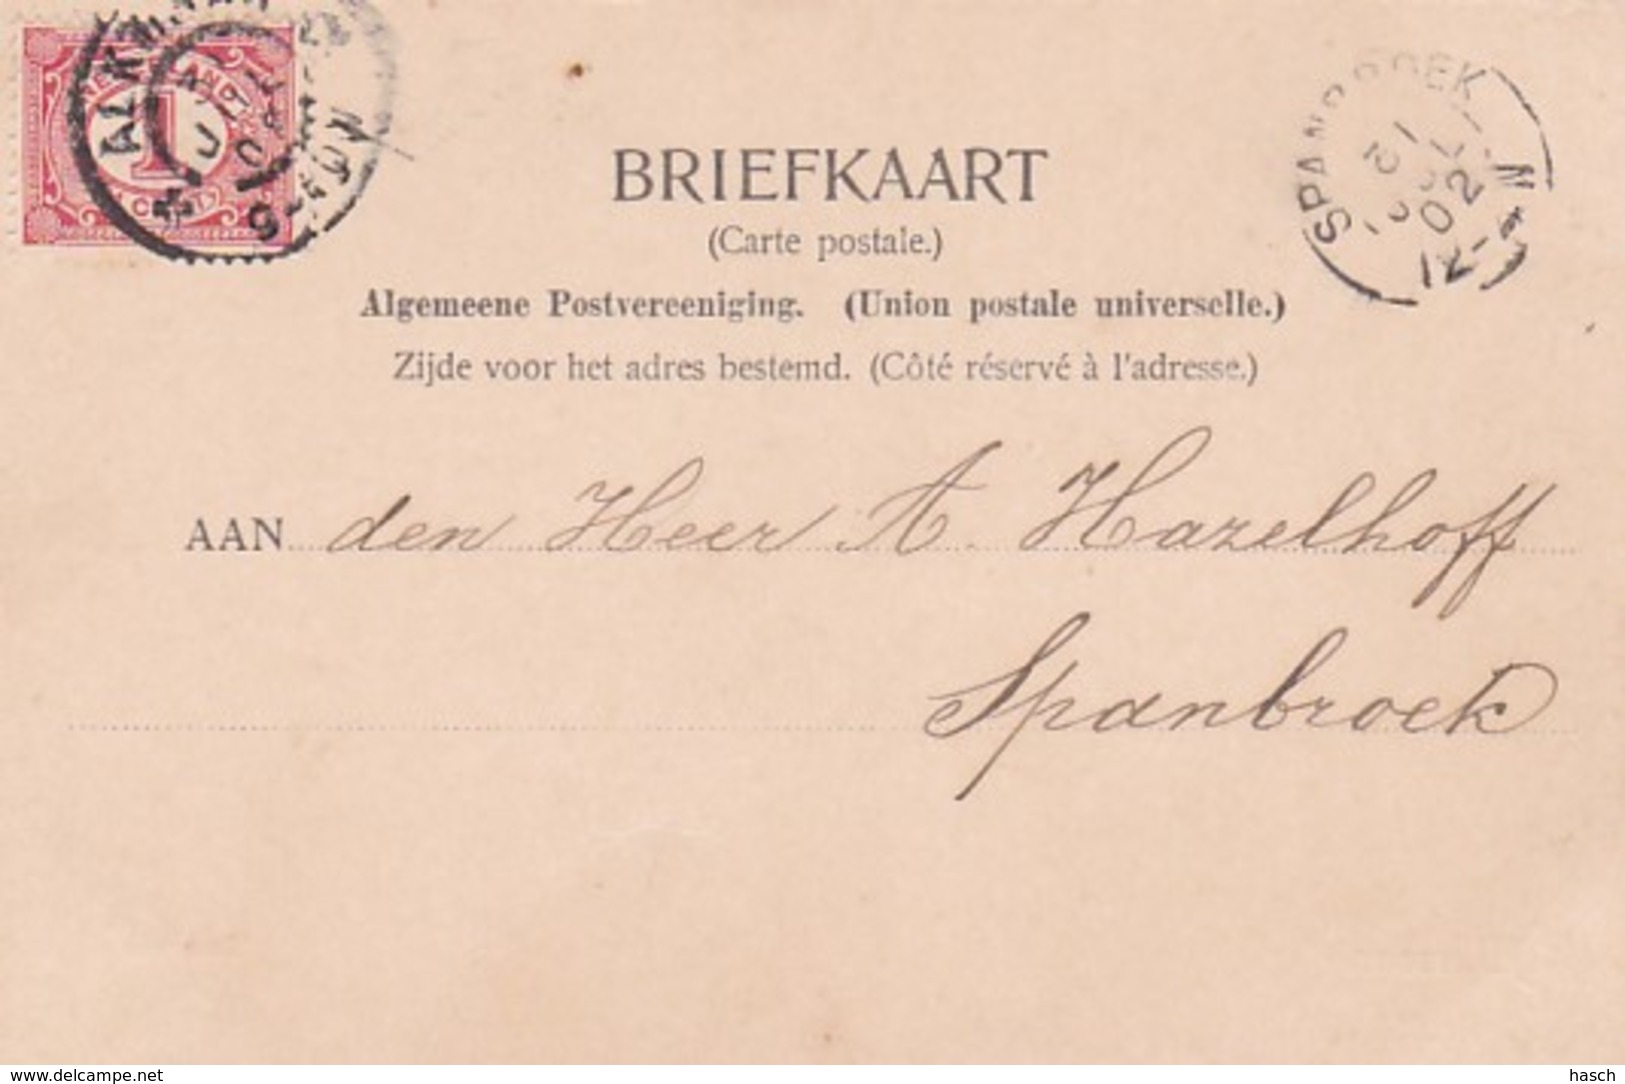 ALKMAAR
NEDERLAND
1
CENT
SPANBROEK
12 JUL
02
12-4N
BRIEFKAART
(Carte postale.)
Algemeene Postvereeniging. (Union postale universelle.)
Zijde voor het adres bestemd. (Côté réservé à l'adresse.)
AAN den Heer A. Hazelhoff
Spanbroek
www.delcampe.net
hasch